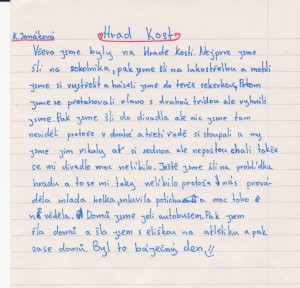 K. Janáková
Hrad Kost
Včera jsme byly na Hradě Kosti. Nejprve jsme
šli na sokolníka, pak jsme šli na lukostřelbu a mohli
jsme si vystřelit a házeli jsme do terče sekerkou, Potom
jsme se přetahovali o lano s druhou třídou ale vyhráli
jsme. Pak jsme šli do divadla ale nic jsme tam
neviděli protože v druhé a třetí řadě si stoupali a my
jsme jim říkaly ať si sednou ale neposlouchali takže
se mi divadlo moc nelíbilo. Ještě jsme šli na prohlídku
hradu a to se mi taky nelíbilo protože nás prová-
děla mladá holka, mluvila potichu a moc toho
nevěděla. Domů jsme jeli autobusem. Pak jsem
šla domů a šla jsem s eliškou na atletiku a pak
zase domů. Byl to báječný den!!